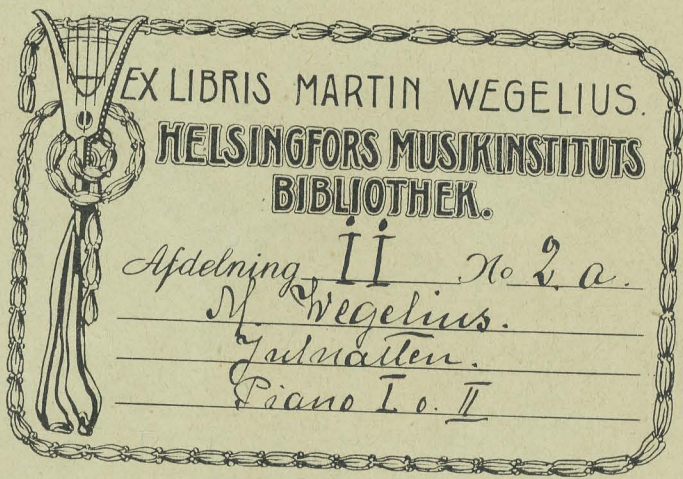 EX LIBRIS MARTIN WEGELIUS.
HELSINGFORS MUSIKINSTITUTS
BIBLIOTHEK.
Afdelning II No 2 a.
M. Wegelius.
Julnatten.
Piano I o. II